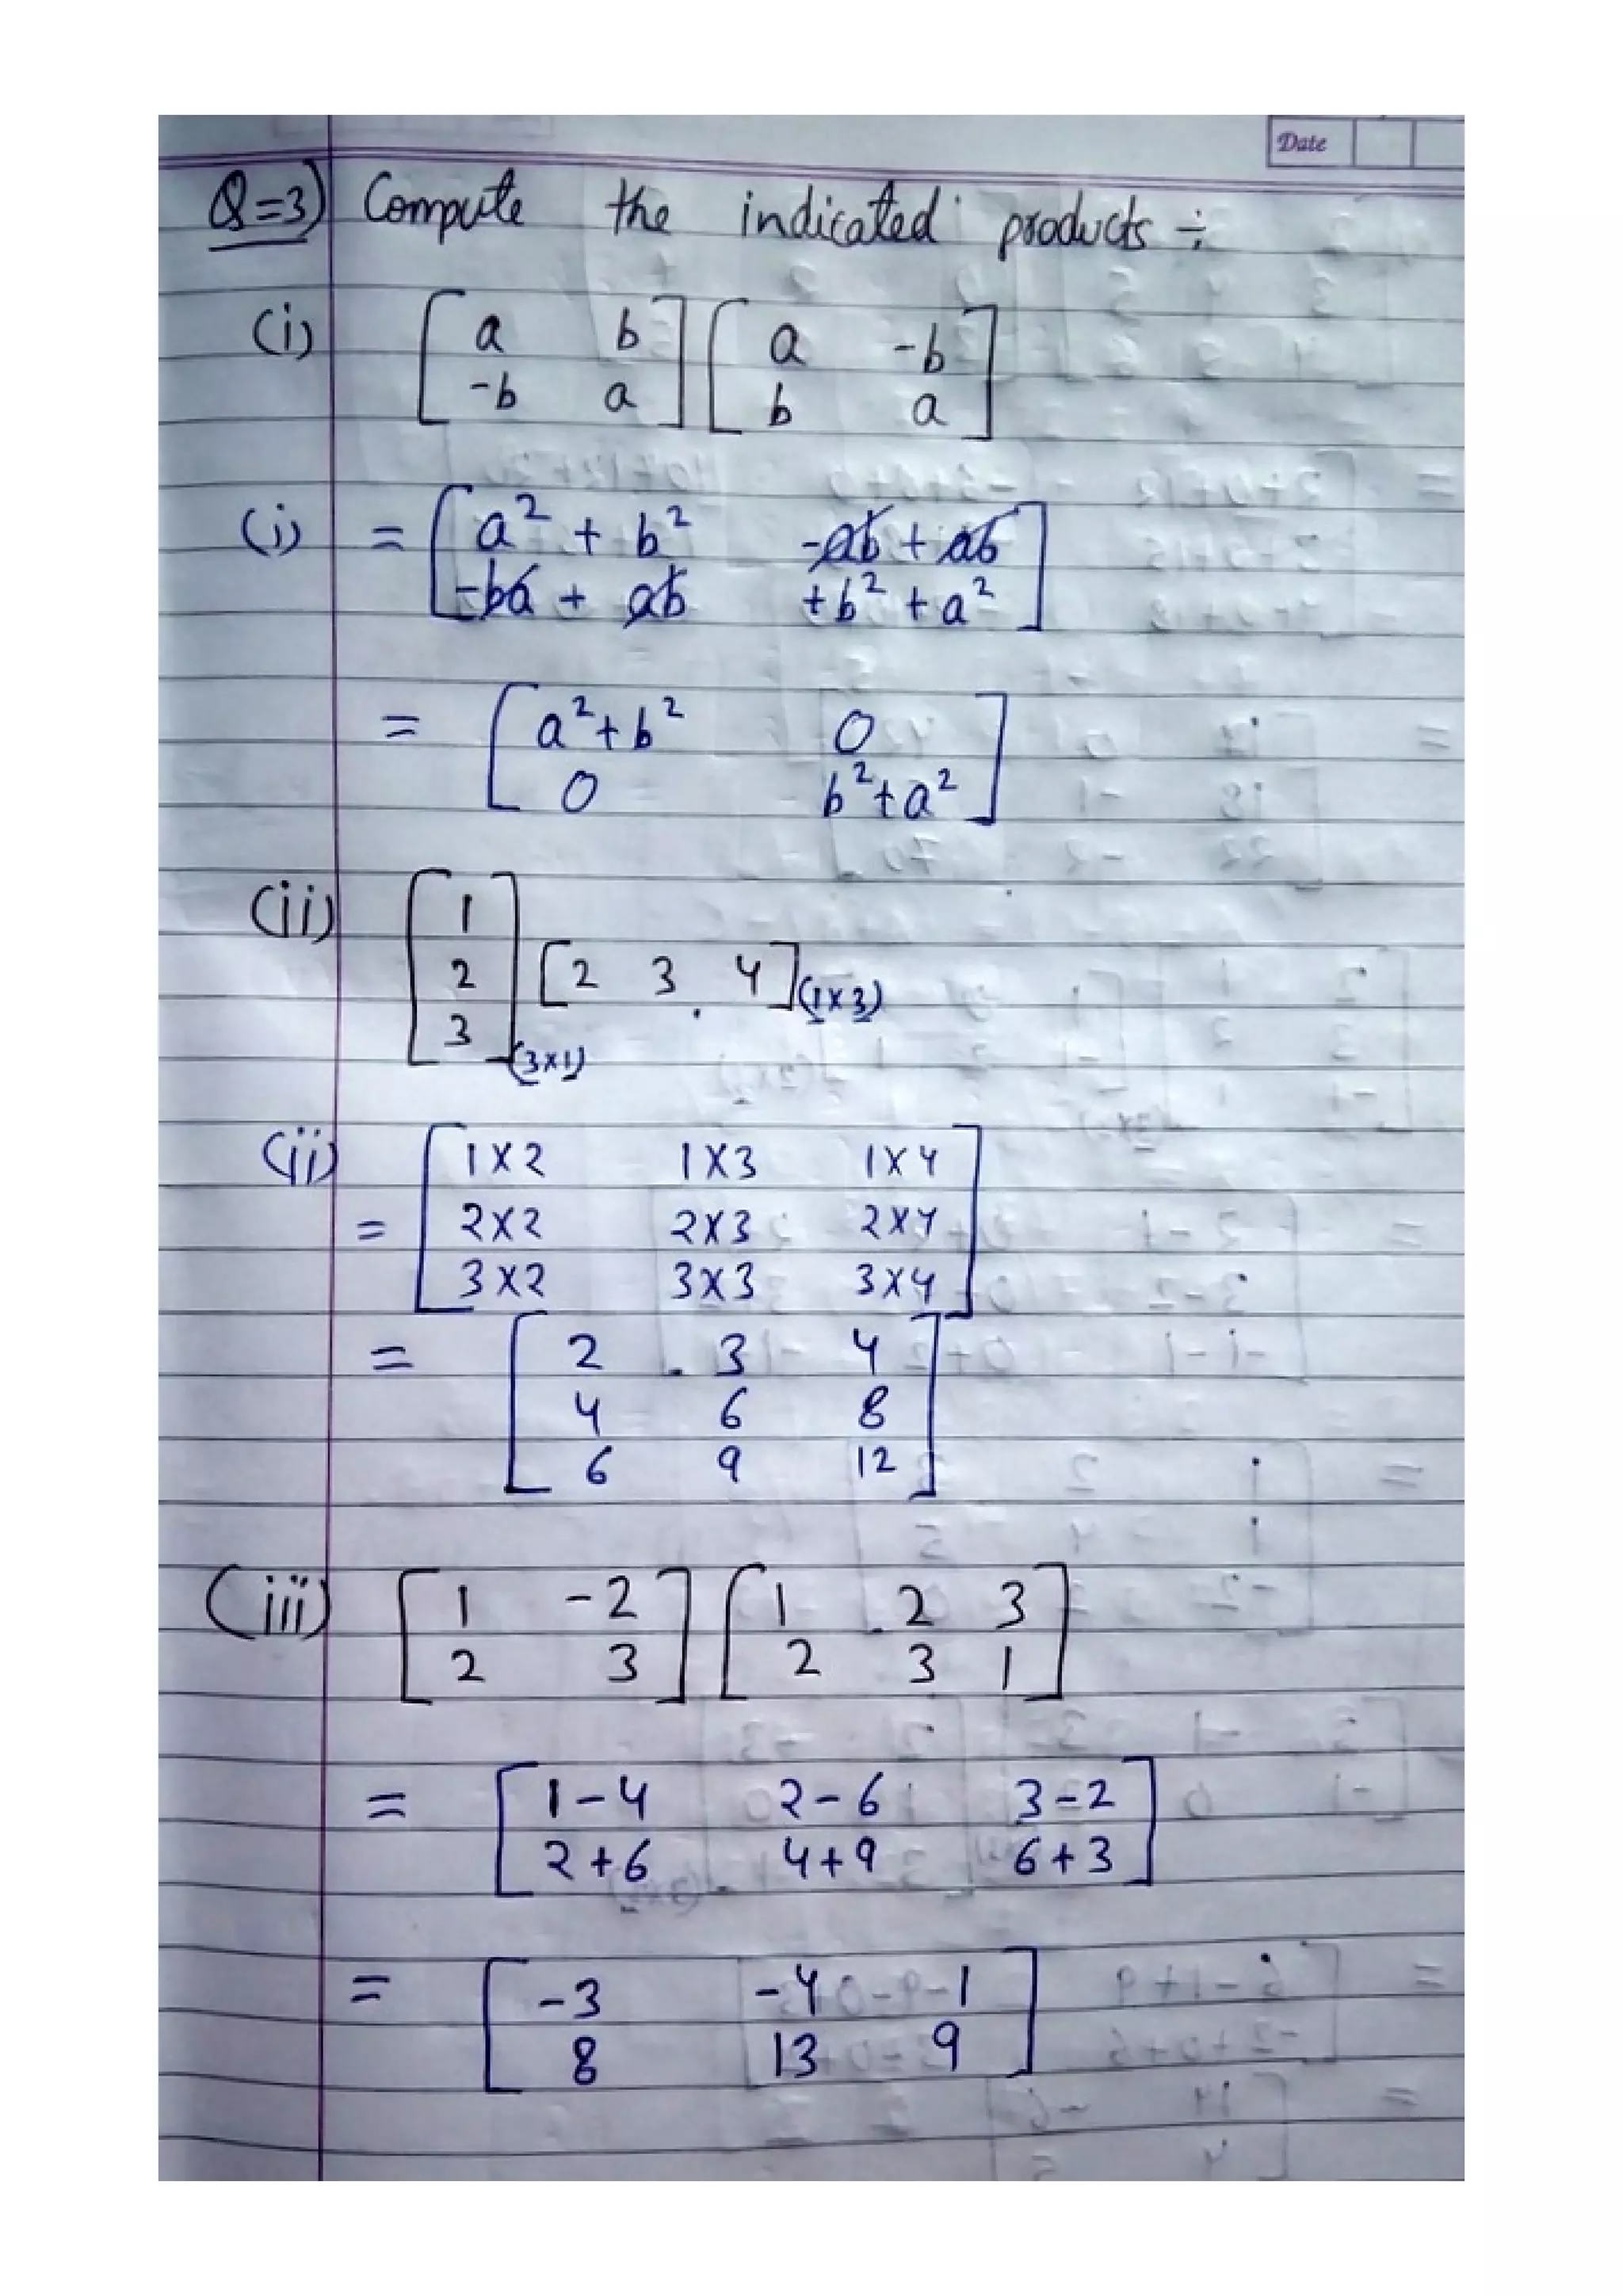 Date
Q=3) Compute the indicated products ÷
(i) [ a b ] [ a -b ]
[ -b a ] [ b a ]
(i) = [ a² + b² -ab + ab ]
[ -ba + ab +b² + a² ]
= [ a²+b² 0 ]
[ 0 b²+a² ]
(ii) [ 1 ]
[ 2 ] [ 2 3 4 ](1×3)
[ 3 ](3×1)
(ii) [ 1×2 1×3 1×4 ]
= [ 2×2 2×3 2×4 ]
[ 3×2 3×3 3×4 ]
= [ 2 3 4 ]
[ 4 6 8 ]
[ 6 9 12 ]
(iii) [ 1 -2 ] [ 1 2 3 ]
[ 2 3 ] [ 2 3 1 ]
= [ 1-4 2-6 3-2 ]
[ 2+6 4+9 6+3 ]
= [ -3 -4 1 ]
[ 8 13 9 ]